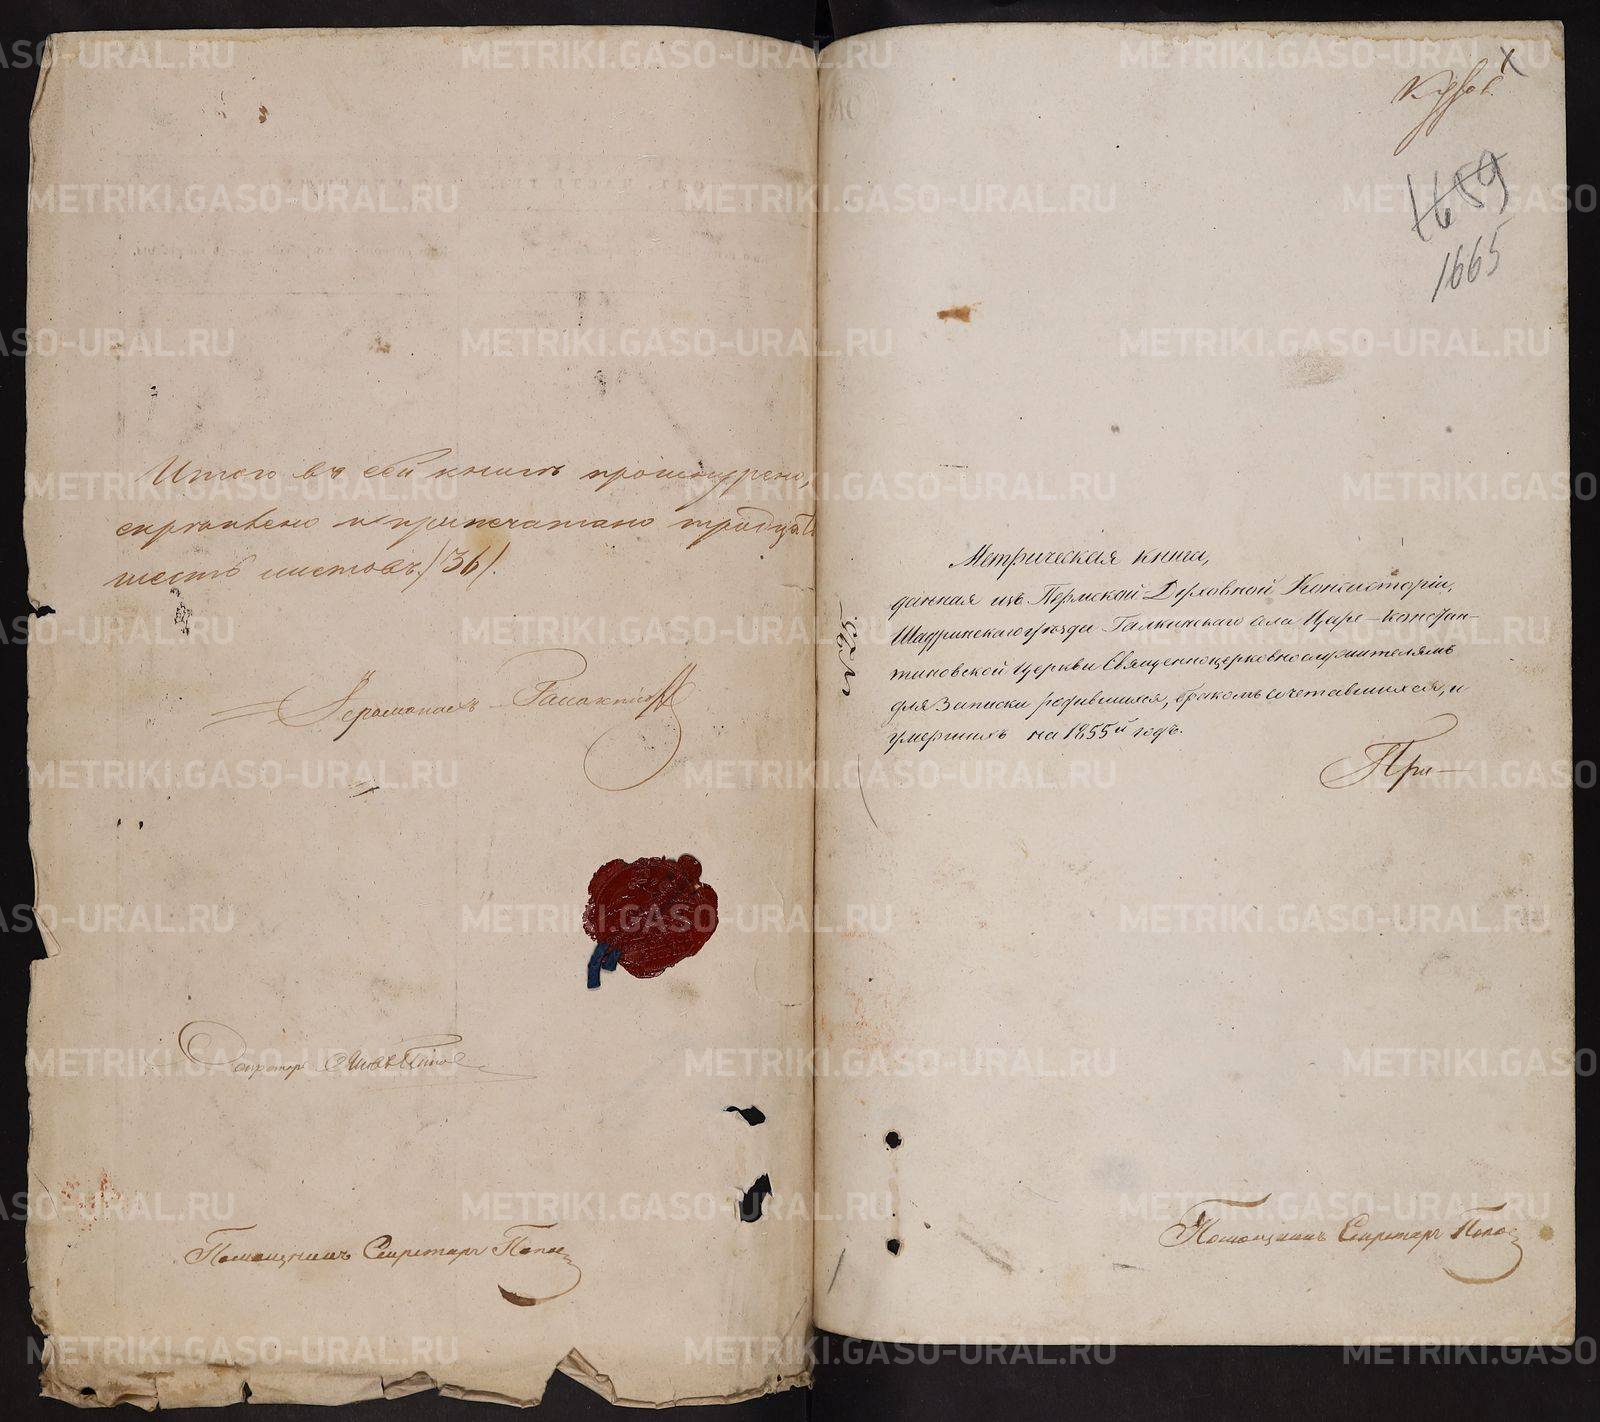 Итого въ сей книгѣ прошнурено,
скрѣплено и припечатано тридцать
шесть листовъ /36/.
Іеромонахъ
Секретарь
Помощникъ Секретаря Попов
1
1659
1665
Метрическая книга,
данная изъ Пермской Духовной Консисторіи,
Шадринскаго уѣзда Галкинскаго села Царе-Констан-
тиновской Церкви Священноцерковнослужителямъ
для Записки родившихся, бракомъ сочетавшихся, и
умершихъ на 1855й годъ.
При-
Помощникъ Секретаря Попов
METRIKI.GASO-URAL.RU